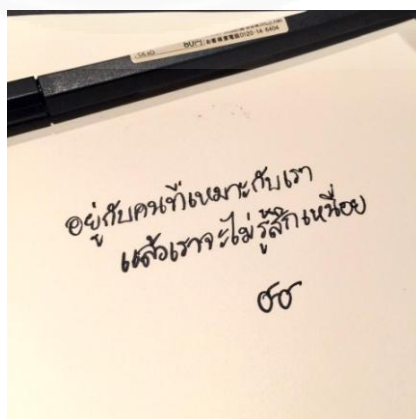 お客様相談室0120-14-6404
อยู่กับคนที่เหมาะกับเรา
แล้วเราจะไม่รู้สึกเหนื่อย